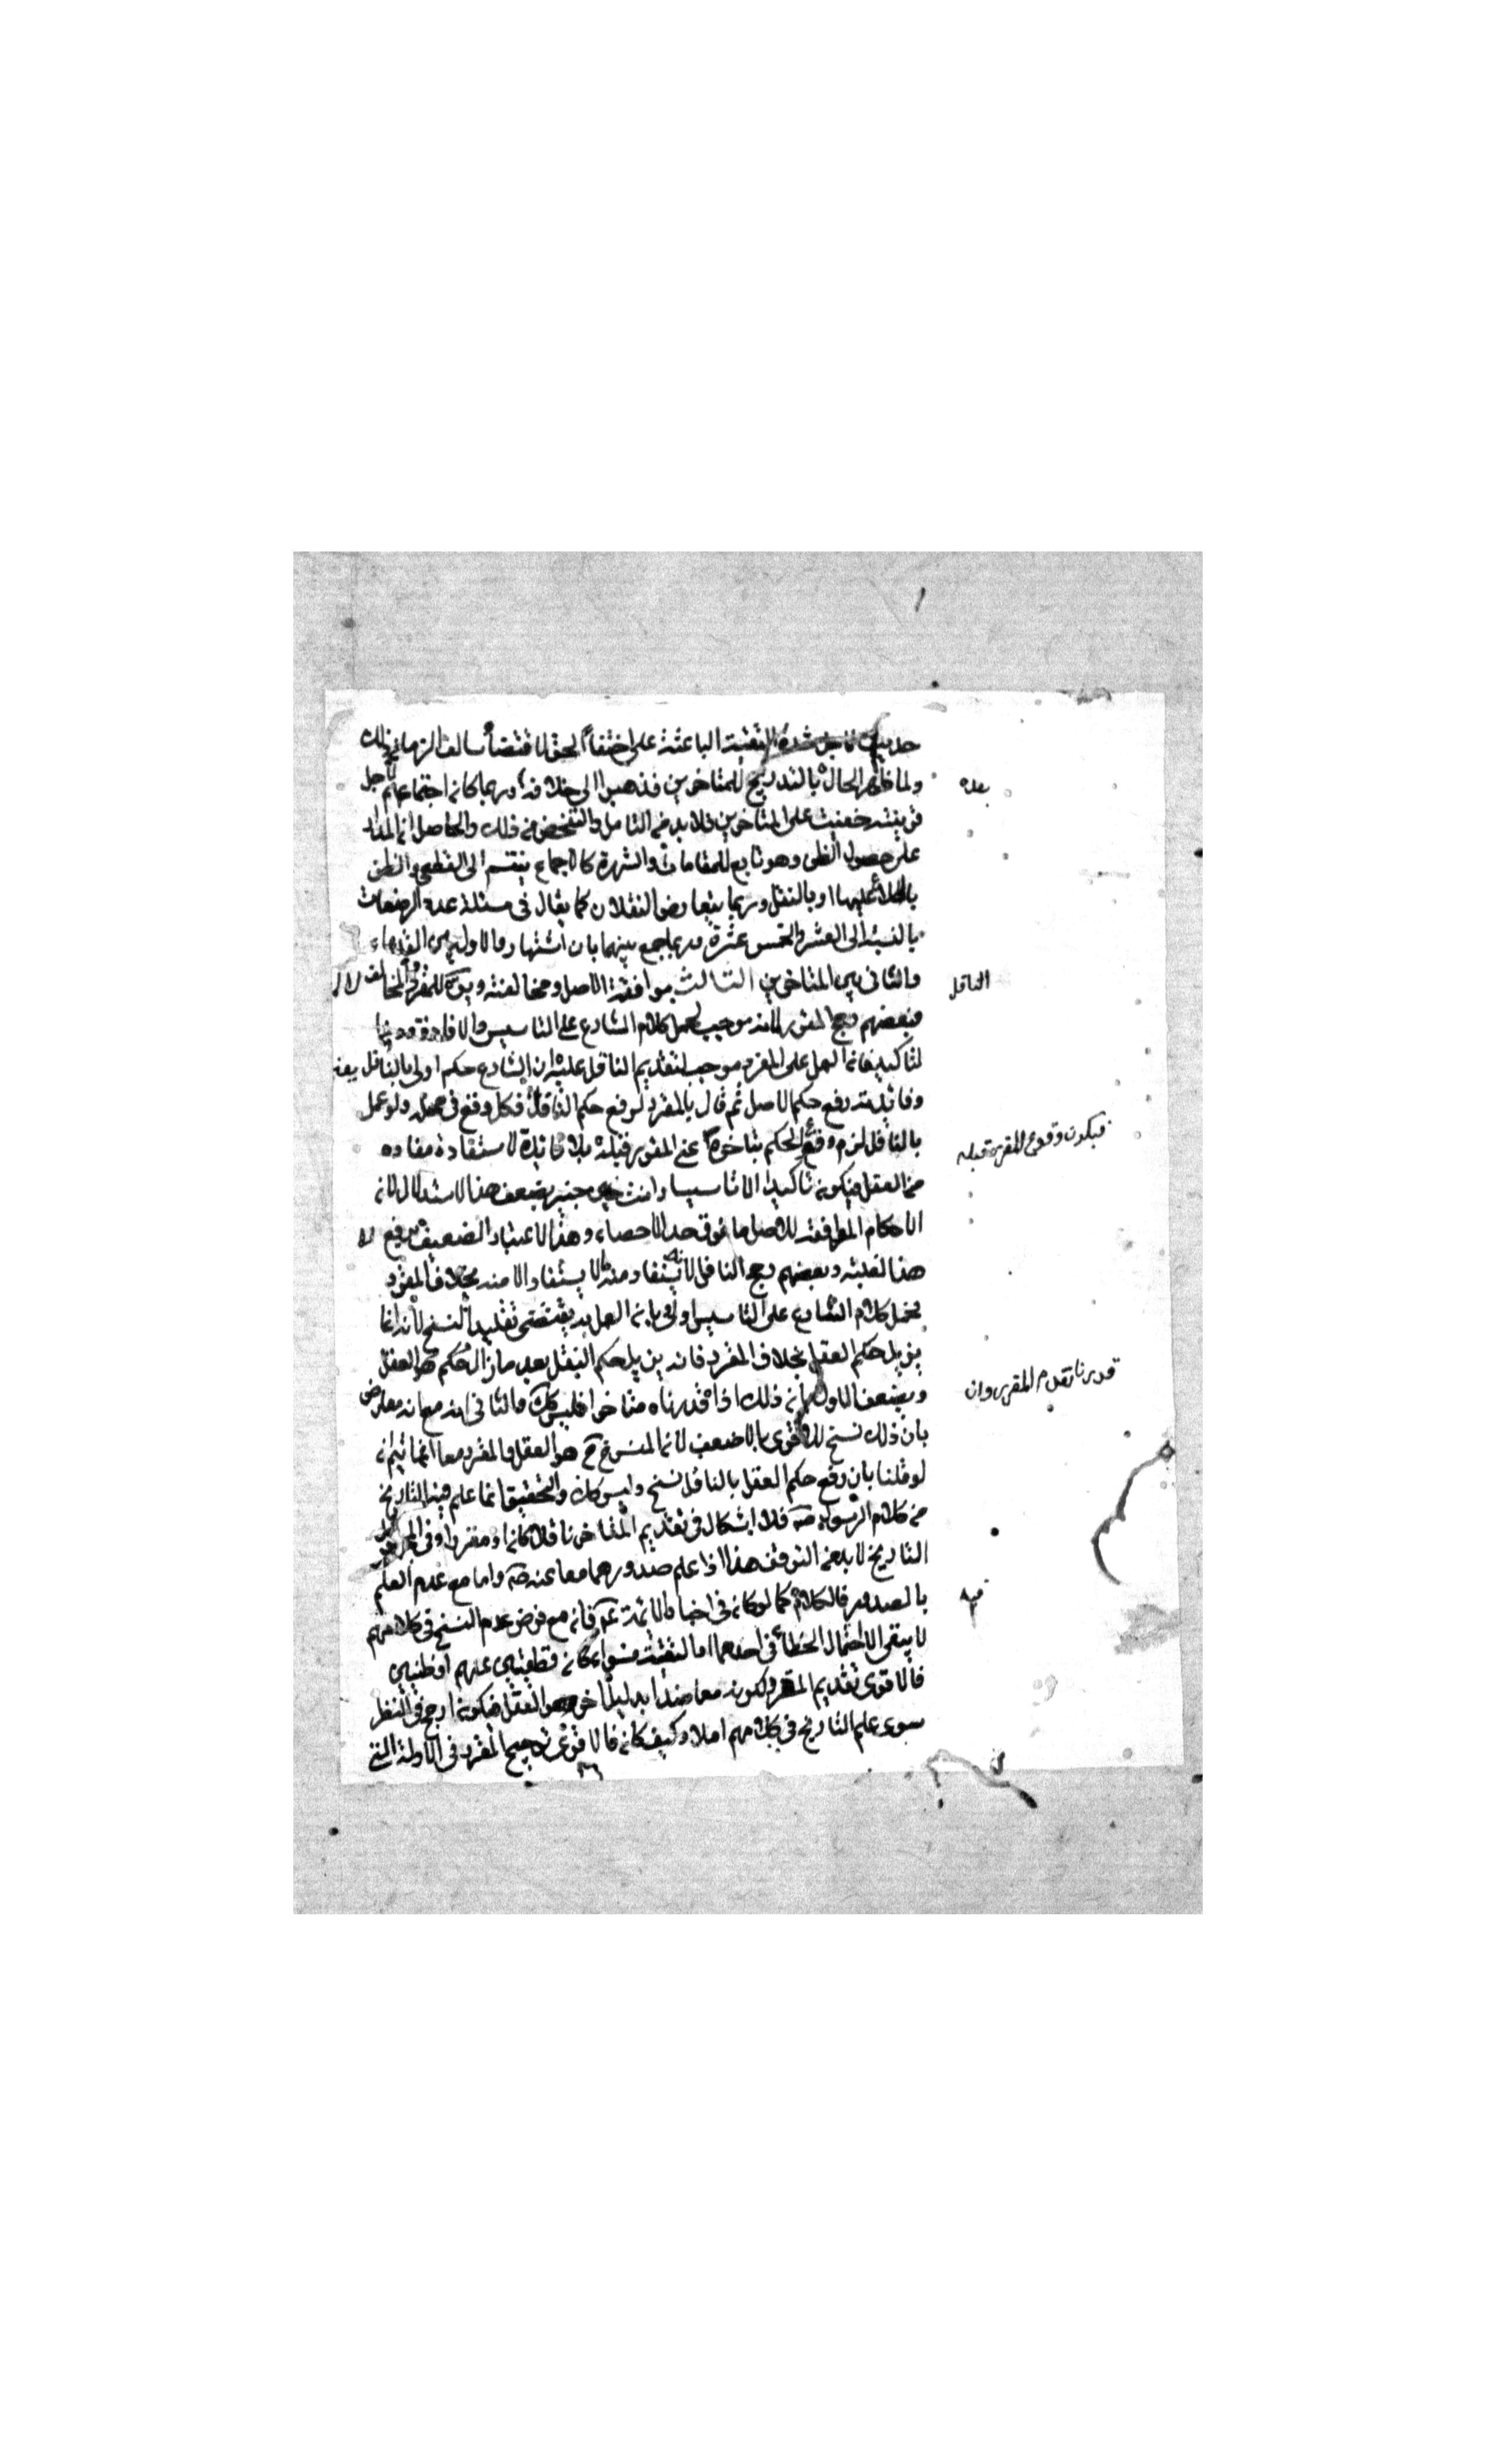 حديث لاجل شدة التقية الباعثة على اختفاء الحق لاقتضاء سالف الزمان ذلك
ولما ظهر الحال بالتدريج للمتاخرين فذهبوا الى خلافه وربما كان اجتماعهم لاجل
قرينة خفيت على المتاخرين فلا بد من التامل والتفحص في ذلك والحاصل ان المدار
على حصول الظن وهو تابع للمقامات والشهرة كالاجماع ينقسم الى القطعي والظني
بالاطلاع عليها او بالنقل وربما يتعارض النقلان كما يقال في مسئلة عدد الرضعات
بالنسبة الى العشر والخمس عشرة وربما يجمع بينهما بان اشتهار الاول بين القدماء
والثاني بين المتاخرين الثالث موافقة الاصل ومخالفته
فبعضهم رجح المقرر لانه موجب لحمل كلام الشارع على التاسيس والا
للتاكيد فان العمل على المقرر موجب لتقديم الناقل عليه ان الشارع حكم اولا بالناقل
وفائدته رفع حكم الاصل ثم قال بالمقرر لرفع حكم الناقل فكل وقع في محله ولو عمل
بالناقل لزم وقوع الحكم متاخرا عن المقرر قبله بلا فائدة لاستفادة مفاده
من العقل فيكون تاكيدا لا تاسيسا وانت خبير بضعف هذا الاستدلال لان
الاحكام الموافقة للاصل ما فوق حد الاحصاء وهذا الاعتبار الضعيف
هذا لغلبته وبعضهم رجح الناقل لانه يستفاد منه ما لا يستفاد الا منه بخلاف المقرر
فحمل كلام الشارع على التاسيس اولى وبان العمل به يقتضى تقليل النسخ لانه انما
يزيل حكم العقل بخلاف المقرر فانه يزيل حكم النقل بعد ما زال حكم العقل
ويضعف الاول بان ذلك اذا قدرناه متاخرا فليس كك والثاني انه مع انه معارض
بان ذلك نسخ للاقوى بالاضعف لان المنسوخ ح هو العقل والمقرر معا انما يتم
لو قلنا بان رفع حكم العقل بالناقل نسخ وليس كك والتحقيق انما علم فيه التاريخ
من كلام الرسول ص فلا اشكال في تقديم المتاخر ناقلا كان او مقررا وفي
التاريخ لا بد من التوقف هذا اذا علم صدورهما معا عنه ص واما مع عدم العلم
بالصدور فالكلام كما لو كان في اخبار الائمة ع فانه مع فرض عدم النسخ في كلامهم
لا يبقى الا احتمال الخطأ في احدهما او التقية سواء كان قطعيين عنهم او ظنيين
فالاقوى تقديم المقرر لكونه معاضدا بدليل اخر هو العقل فيكون ارجح في النظر
سوى علم التاريخ في كلامهم ام لا وكيف كان فالاقوى ترجيح المقرر في الادلة التي
بعده
الناقل
فيكون وقوع المقرر قبله
قدرنا تقدم المقرر وان
فيه